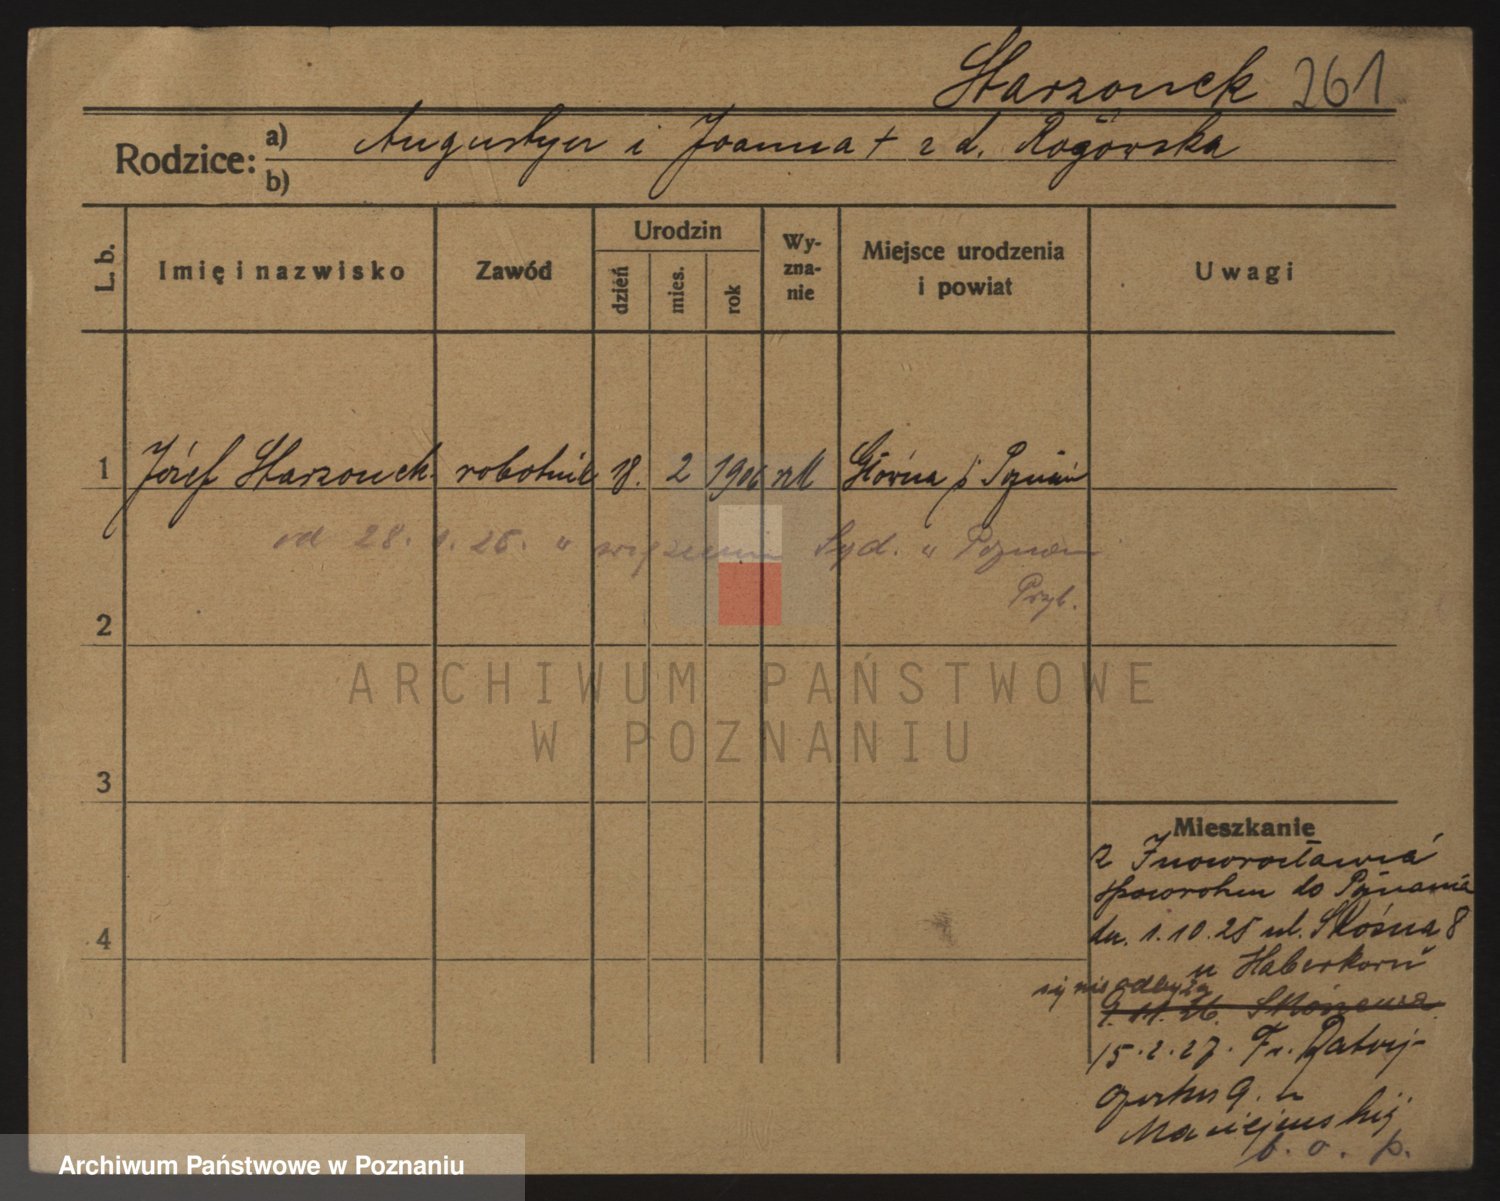 Starzonek 261
Rodzice: a) b) Augustyn i Joanna + z d. Rogowska
L. b. Imię i nazwisko Zawód Urodzin dzień mies. rok Wyznanie Miejsce urodzenia i powiat Uwagi
1 Józef Starzonek robotnik 18. 2 1906 rzk Główna p. Poznań
od 28. 1. 26. w więzieniu Sąd. w Poznaniu
Przyb.
2
3
4
Mieszkanie
z Inowrocławia
spowrotem do Poznania
dn. 1.10.25 ul. Skośna 8
u Haberkorn
się nie odbyło
9.11.26.
15.2.27. Fr. Ratajczaka 9. u
Maciejewskiej
b. o. p.
ARCHIWUM PAŃSTWOWE
W POZNANIU
Archiwum Państwowe w Poznaniu